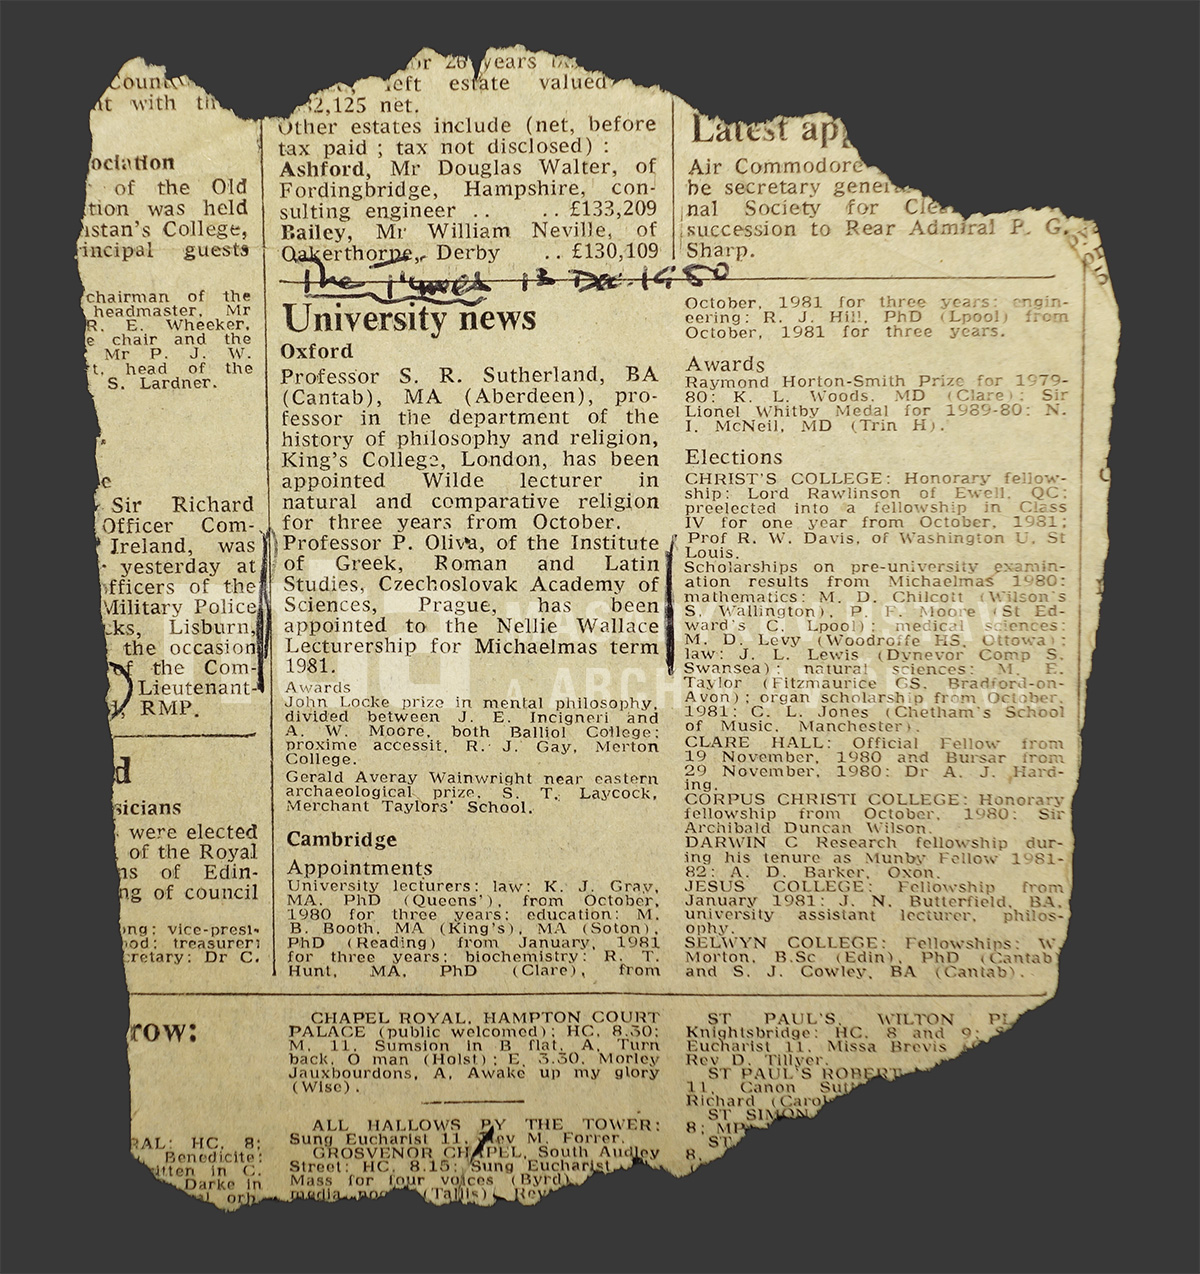 Count
nt with th
ociation
of the Old
tion was held
stan's College,
incipal guests
chairman of the
headmaster, Mr
R. E. Wheeker,
e chair and the
Mr P. J. W.
t, head of the
S. Lardner.
e
Sir Richard
Officer Com-
Ireland, was
yesterday at
fficers of the
Military Police
cks, Lisburn,
the occasion
of the Com-
Lieutenant-
RMP.
d
sicians
were elected
of the Royal
ns of Edin-
ng of council
ong: vice-presi-
ood: treasurer:
cretary: Dr C.
row:
RAL: HC, 8:
Benedicite:
itten in C.
Darke in
or 26 years
left estate valued
2,125 net.
Other estates include (net, before
tax paid ; tax not disclosed) :
Ashford, Mr Douglas Walter, of
Fordingbridge, Hampshire, con-
sulting engineer .. .. £133,209
Bailey, Mr William Neville, of
Oakerthorpe, Derby .. £130,109
Latest ap
Air Commodore
be secretary gener
nal Society for Cle
succession to Rear Admiral P. G.
Sharp.
The Times 13 Dec. 1980
University news
Oxford
Professor S. R. Sutherland, BA
(Cantab), MA (Aberdeen), pro-
fessor in the department of the
history of philosophy and religion,
King's College, London, has been
appointed Wilde lecturer in
natural and comparative religion
for three years from October.
Professor P. Oliva, of the Institute
of Greek, Roman and Latin
Studies, Czechoslovak Academy of
Sciences, Prague, has been
appointed to the Nellie Wallace
Lecturership for Michaelmas term
1981.
Awards
John Locke prize in mental philosophy,
divided between J. E. Incigneri and
A. W. Moore, both Balliol College:
proxime accessit, R. J. Gay, Merton
College.
Gerald Averay Wainwright near eastern
archaeological prize, S. T. Laycock,
Merchant Taylors' School.
Cambridge
Appointments
University lecturers: law: K. J. Gray,
MA, PhD (Queens'), from October,
1980 for three years; education: M.
B. Booth, MA (King's), MA (Soton),
PhD (Reading) from January, 1981
for three years; biochemistry: R. T.
Hunt, MA, PhD (Clare), from
October, 1981 for three years: engin-
eering: R. J. Hill, PhD (Lpool) from
October, 1981 for three years.
Awards
Raymond Horton-Smith Prize for 1979-
80: K. L. Woods, MD (Clare); Sir
Lionel Whitby Medal for 1989-80: N.
I. McNeil, MD (Trin H).
Elections
CHRIST'S COLLEGE: Honorary fellow-
ship: Lord Rawlinson of Ewell, QC;
preelected into a fellowship in Class
IV for one year from October, 1981;
Prof R. W. Davis, of Washington U, St
Louis.
Scholarships on pre-university examin-
ation results from Michaelmas 1980:
mathematics: M. D. Chilcott (Wilson's
S, Wallington), P. F. Moore (St Ed-
ward's C, Lpool); medical sciences:
M. D. Levy (Woodroffe HS, Ottowa);
law: J. L. Lewis (Dynevor Comp S,
Swansea); natural sciences: M. E.
Taylor (Fitzmaurice GS, Bradford-on-
Avon); organ scholarship from October,
1981: C. L. Jones (Chetham's School
of Music, Manchester).
CLARE HALL: Official Fellow from
19 November, 1980 and Bursar from
29 November, 1980: Dr A. J. Hard-
ing.
CORPUS CHRISTI COLLEGE: Honorary
fellowship from October, 1980: Sir
Archibald Duncan Wilson.
DARWIN C Research fellowship dur-
ing his tenure as Munby Fellow 1981-
82: A. D. Barker, Oxon.
JESUS COLLEGE: Fellowship from
January 1981: J. N. Butterfield, BA,
university assistant lecturer, philos-
ophy.
SELWYN COLLEGE: Fellowships: W.
Morton, B.Sc (Edin), PhD (Cantab)
and S. J. Cowley, BA (Cantab).
CHAPEL ROYAL, HAMPTON COURT
PALACE (public welcomed): HC, 8.30;
M, 11, Sumsion in B flat, A, Turn
back, O man (Holst); E, 3.30, Morley
Jauxbourdons, A, Awake up my glory
(Wise).
ALL HALLOWS BY THE TOWER:
Sung Eucharist 11, Rev M. Forrer.
GROSVENOR CHAPEL, South Audley
Street: HC, 8.15; Sung Eucharist
Mass for four voices (Byrd)
(Tallis) Rev
ST PAUL'S, WILTON PL
Knightsbridge: HC, 8 and 9; S
Eucharist 11, Missa Brevis
Rev D. Tillyer.
ST PAUL'S ROBERT
11, Canon Sut
Richard (Carol
ST SIMON
8; MP
ST
8,
MASARYK
ARCH